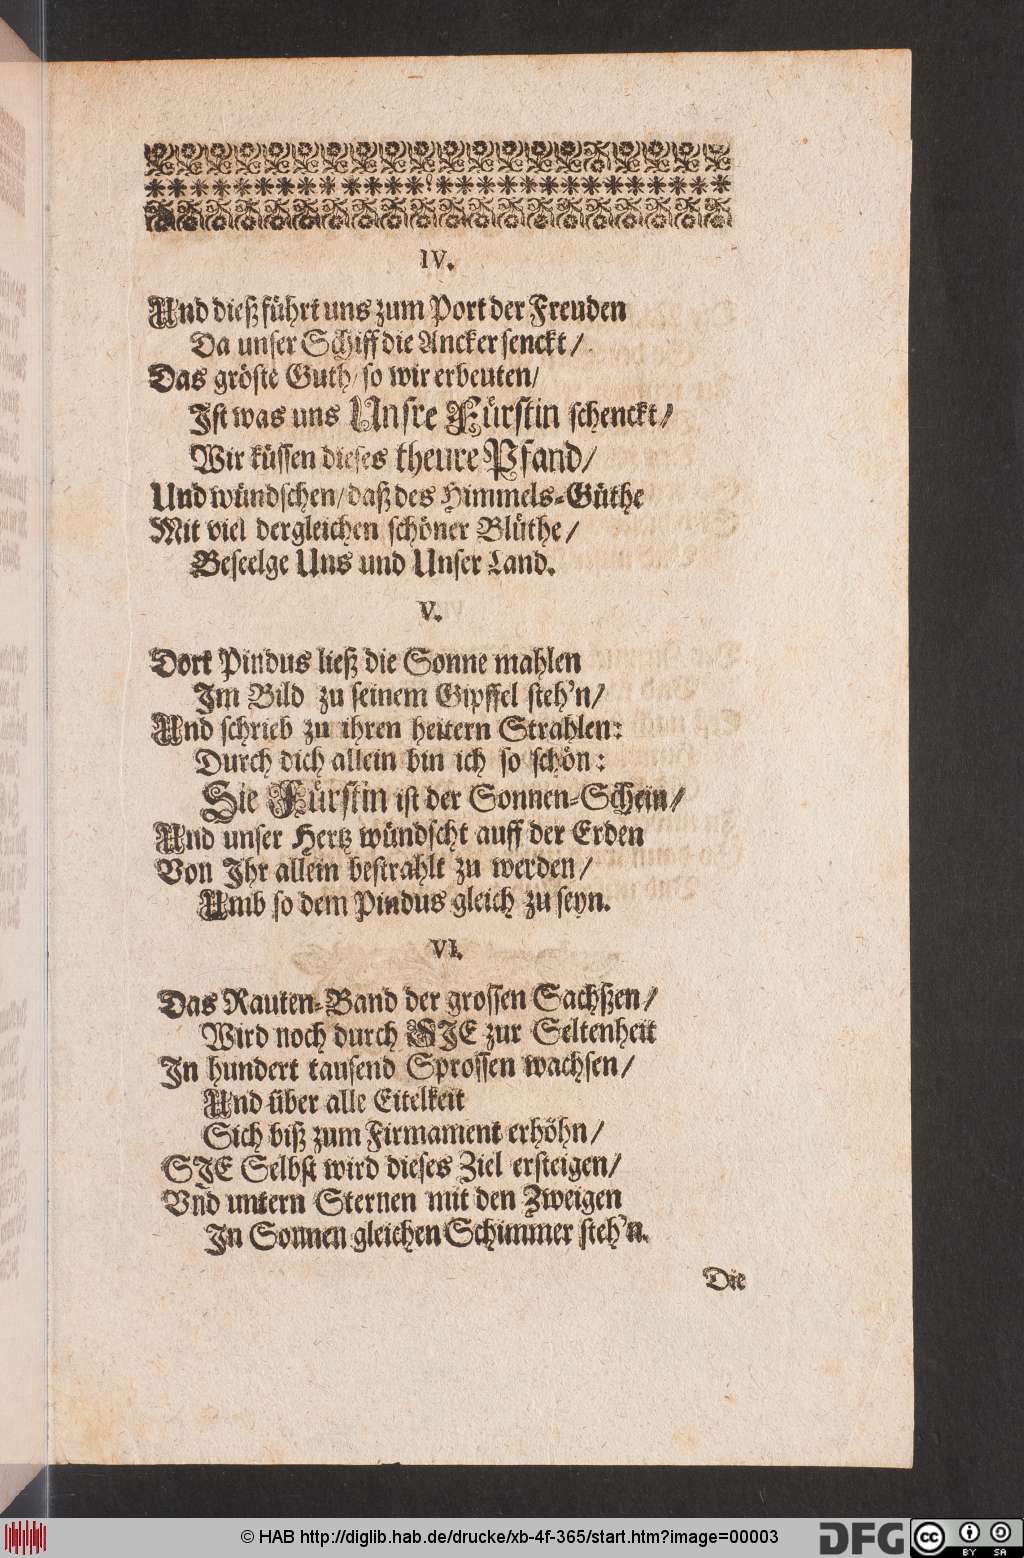 IV.
Und dieß führt uns zum Port der Freuden
Da unser Schiff die Ancker senckt/
Das gröste Guth/ so wir erbeuten/
Ist was uns Unsre Fürstin schenckt/
Wir küssen dieses theure Pfand/
Und wündschen/ daß des Himmels-Güthe
Mit viel dergleichen schöner Blüthe/
Beseelge Uns und Unser Land.
V.
Dort Pindus ließ die Sonne mahlen
Im Bild zu seinem Gipffel steh'n/
Und schrieb zu ihren heitern Strahlen:
Durch dich allein bin ich so schön:
Die Fürstin ist der Sonnen-Schein/
Und unser Hertz wündscht auff der Erden
Von Ihr allein bestrahlt zu werden/
Umb so dem Pindus gleich zu seyn.
VI.
Das Rauten-Band der grossen Sachßen/
Wird noch durch SIE zur Seltenheit
In hundert tausend Sprossen wachsen/
Und über alle Eitelkeit
Sich biß zum Firmament erhöhn/
SIE Selbst wird dieses Ziel ersteigen/
Vnd untern Sternen mit den Zweigen
In Sonnen gleichen Schimmer steh'n.
Die
© HAB http://diglib.hab.de/drucke/xb-4f-365/start.htm?image=00003
DFG
cc BY SA